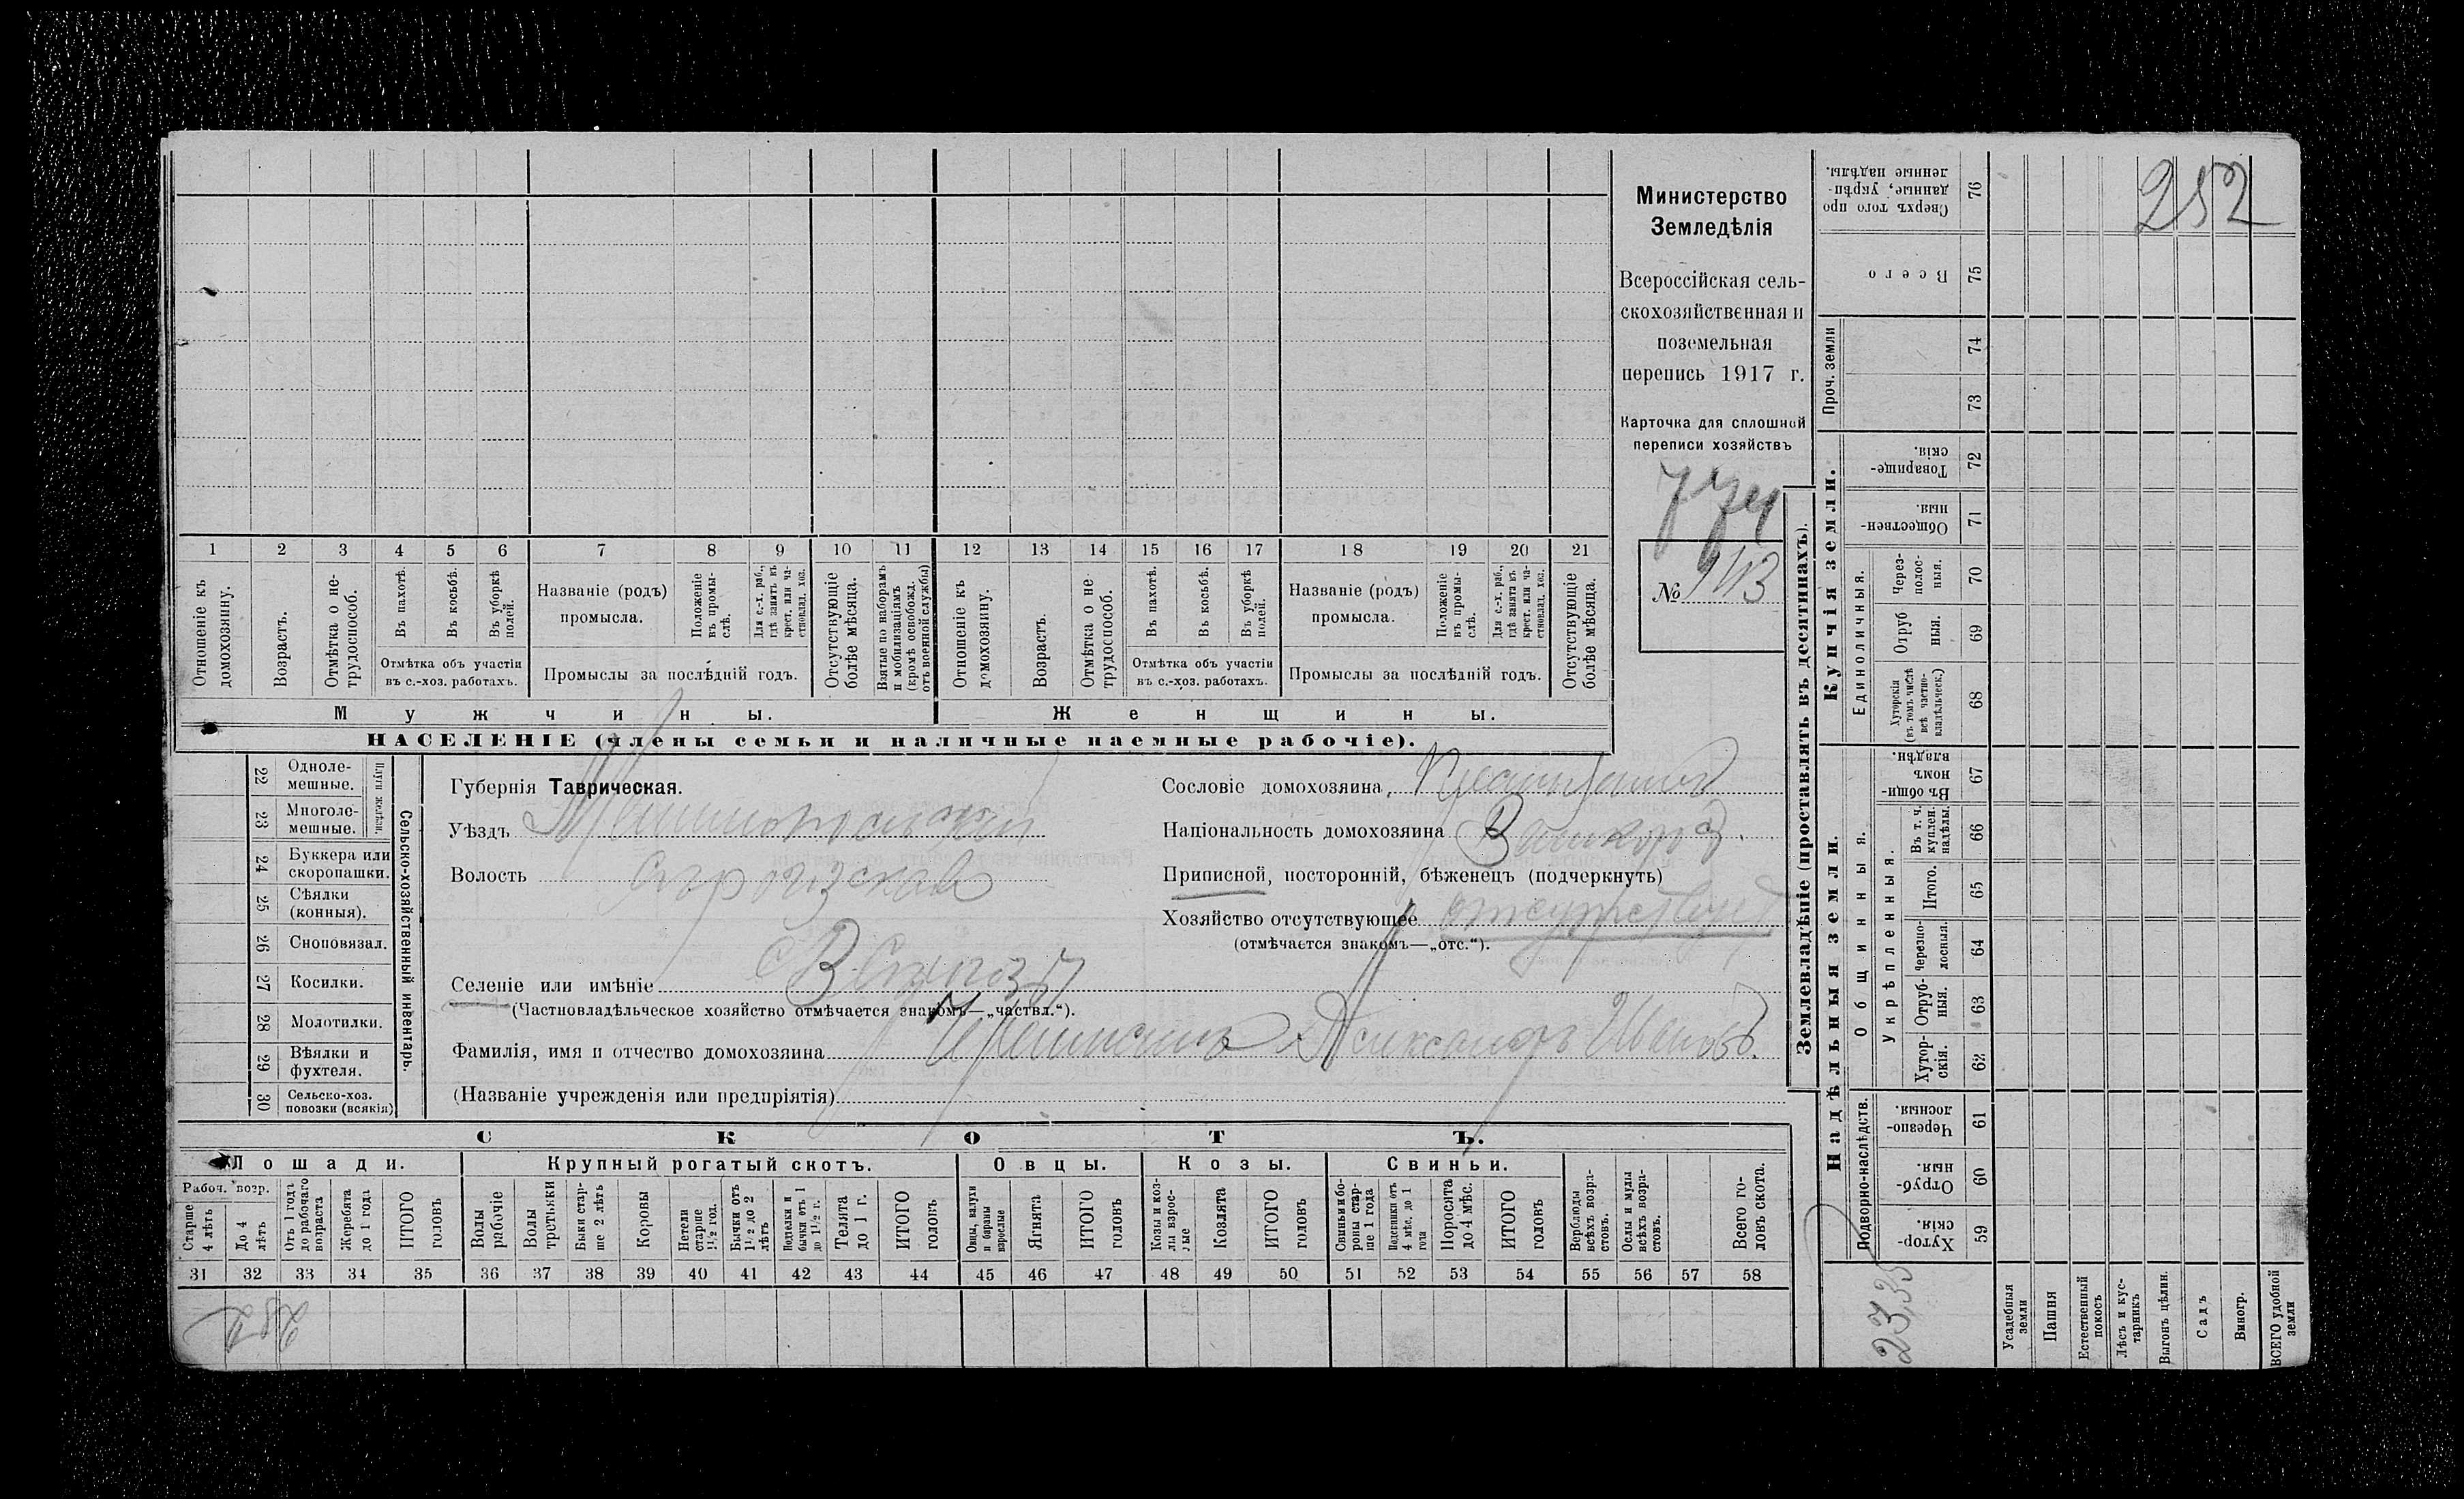 1 2 3 4 5 6 7 8 9 10 11 12 13 14 15 16 17 18 19 20 21
Отношеніе къ домохозяину.
Возрастъ.
Отмѣтка о не-
трудоспособ.
Въ пахотѣ.
Въ косьбѣ.
Въ уборкѣ
полей.
Отмѣтка объ участіи
въ с.-хоз. работахъ.
Названіе (родъ)
промысла.
Положеніе
въ промы-
слѣ.
Для с.-х. раб.,
гдѣ занятъ въ
крест. или ча-
стновлад. хоз.
Промыслы за послѣдній годъ.
Отсутствующіе
болѣе мѣсяца.
Взятые по наборамъ
и мобилизаціямъ
(кромѣ освобожд.
отъ военной службы)
Отношеніе къ
домохозяину.
Возрастъ.
Отмѣтка о не
трудоспособ.
Въ пахотѣ.
Въ косьбѣ.
Въ уборкѣ
полей.
Отмѣтка объ участіи
въ с.-хоз. работахъ.
Названіе (родъ)
промысла.
Положеніе
въ промы-
слѣ.
Для с.-х. раб.,
гдѣ занята въ
крест. или ча-
стновлад. хоз.
Промыслы за послѣдній годъ.
Отсутствующіе
болѣе мѣсяца.
Мужчины.
Женщины.
НАСЕЛЕНІЕ (члены семьи и наличные наемные рабочіе).
Министерство
Земледѣлія
Всероссійская сель-
скохозяйственная и
поземельная
перепись 1917 г.
Карточка для сплошной
переписи хозяйствъ
774
№ 143
22 Одноле-
мешные.
23 Многоле-
мешные.
Плуги желѣзн.
24 Буккера или
скоропашки.
25 Сѣялки
(конныя).
26 Сноповязал.
27 Косилки.
28 Молотилки.
29 Вѣялки и
фухтеля.
30 Сельско-хоз.
повозки (всякія)
Сельско-хозяйственный инвентарь.
Губернія Таврическая.
Уѣздъ
Волость
Селеніе или имѣніе
(Частновладѣльческое хозяйство отмѣчается знакомъ—„частвл.“).
Фамилія, имя и отчество домохозяина
(Названіе учрежденія или предпріятія)
Сословіе домохозяина,
Національность домохозяина
Приписной, посторонній, бѣженецъ (подчеркнуть)
Хозяйство отсутствующее отсутствует
(отмѣчается знакомъ—„отс.“).
СКОТЪ.
Лошади.
Крупный рогатый скотъ.
Овцы.
Козы.
Свиньи.
Рабоч. возр.
Старше
4 лѣтъ
До 4
лѣтъ
Отъ 1 года
до рабочаго
возраста
Жеребята
до 1 года
ИТОГО
головъ
Волы
рабочіе
Волы
третьяки
Быки стар-
ше 2 лѣтъ
Коровы
Нетели
старше
1½ год.
Бычки отъ
1½ до 2
лѣтъ
Подтелки и
бычки отъ 1
до 1½ г.
Телята
до 1 г.
ИТОГО
головъ
Овцы, валухи
и бараны
взрослые
Ягнята
ИТОГО
головъ
Козы и коз-
лы взрос-
лые
Козлята
ИТОГО
головъ
Свиньи и бо-
ровы стар-
ше 1 года
Подсвинки отъ
4 мѣс. до 1
года
Поросята
до 4 мѣс.
ИТОГО
головъ
Верблюды
всѣхъ возра-
стовъ.
Ослы и мулы
всѣхъ возра-
стовъ.
Всего го-
ловъ скота.
31 32 33 34 35 36 37 38 39 40 41 42 43 44 45 46 47 48 49 50 51 52 53 54 55 56 57 58
Землевладѣніе (проставлять въ десятинахъ).
Купчія земли.
Надѣльныя земли.
Сверхъ того про
данные, укрѣп-
ленные надѣлы.
76
252
Всего
75
Проч. земли
74
73
Товарище-
скія.
72
Обществен-
ныя.
71
Единоличныя.
Через-
полос-
ныя.
70
Отруб
ныя.
69
Хуторскія
(въ томъ числѣ
всѣ частно-
владѣльческ.)
68
Общинныя.
Въ общи-
номъ
владѣн.
67
Укрѣпленныя.
Въ т. ч.
куплен.
надѣлы.
66
Итого.
65
Черезпо-
лосныя.
64
Отруб-
ныя.
63
Хутор-
скія.
62
Подворно-наслѣдств.
Черезпо-
лосныя.
61
Отруб-
ныя.
60
Хутор-
скія.
59
Усадебныя
земли
Пашня
Естественный
покосъ
Лѣсъ и кус-
тарникъ
Выгонъ цѣлин.
Садъ
Виногр.
ВСЕГО удобной
земли